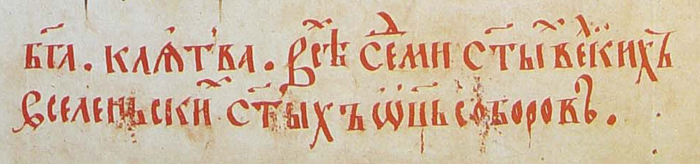 бг҃а. клѧтва. Всѣ Седми с҃ты вели́кихъ
вселеньски с҃тыхъ ѡц҃ь соборовъ.